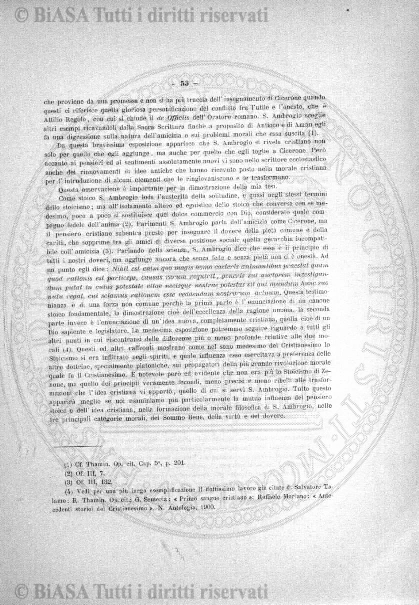 © BiASA Tutti i diritti riservati
— 53 —
che proviene da una promessa e non si ha più traccia dell'insegnamento di Cicerone quando
questi ci riferisce quella gloriosa personificazione del conflitto fra l'utile e l'onesto, che è
Attilio Regolo, con cui si chiude il de Officiis dell'Oratore romano. S. Ambrogio sceglie
altri esempi ricavandoli dalla Sacra Scrittura finchè a proposito di Antioco e di Aman egli
fa una digressione sulla natura dell'amicizia e sui problemi morali che essa suscita (1).
Da questa brevissima esposizione apparisce che S. Ambrogio si rivela cristiano non
solo per quello che egli aggiunge, ma anche per quello che egli toglie a Cicerone. Però
accanto ai pensieri ed ai sentimenti assolutamente nuovi vi sono nello scrittore ecclesiastico
anche dei rinnovamenti di idee antiche che hanno ricevuto posto nella morale cristiana
per l'introduzione di alcuni elementi che le ringiovaniscono e le trasformano.
Questa osservazione è importante per la dimostrazione della mia tesi.
Come stoico S. Ambrogio loda l'austerità della solitudine, e quasi negli stessi termini
dello stoicismo; ma all'isolamento altero ed egoistico dello stoico che conversa con se me-
desimo, poco a poco si sostituisce quel dolce commercio con Dio, considerato quale com-
pagno fedele dell'anima (2). Parimenti S. Ambrogio parla dell'amicizia come Cicerone, ma
il pensiero cristiano subentra presto per insegnare il dovere della pietà comune e della
carità, che sopprime tra gli amici di diversa posizione sociale quella gerarchia incompati-
bile coll'amicizia (3). Parlando della scienza, S. Ambrogio dice che essa è il principio di
tutti i nostri doveri, ma aggiunge ancora che senza fede e senza pietà non vi è onestà. Ad
un punto egli dice: Nihil est enim quo magis homo caeteris animantibus praestet quam
quod rationis est particeps, causas rerum requirit, generis sui auctorem investigan-
dum putat in cuius potestate vitae necisque nostrae potestas sit qui mundum hunc suo
nutu regat, cui sciamus rationem esse reddendam nostrorum actuum. Questa testimo-
nianza è di una forza non comune perchè la prima parte è l'enunciazione di un canone
stoico fondamentale, la dimostrazione cioè dell'eccellenza della ragione umana, la seconda
parte invece è l'enunciazione di un'idea nuova, completamente cristiana, quella cioè di un
Dio sapiente e legislatore. La medesima esposizione potremmo seguire riguardo a tutti gli
altri punti in cui riscontransi delle differenze più o meno profonde relative alle due mo-
rali (4). Questi ed altri raffronti mostrano come nel seno medesimo del Cristianesimo lo
Stoicismo si era infiltrato negli spiriti, e quale influenza esso esercitava a preferenza delle
altre dottrine, specialmente platoniche, sui propagatori della più grande rivoluzione morale
quale fu il Cristianesimo. È notevole però ed evidente che non era più lo Stoicismo di Ze-
none, ma quello dei principî veramente fecondi, meno precisi e meno ribelli alle trasfor-
mazioni che l'idea cristiana vi apportò, quello di cui si servì S. Ambrogio. Tutto questo
apparirà meglio se noi esaminiamo più particolarmente la mutua influenza del pensiero
stoico e dell'idea cristiana, nella formazione della morale filosofica di S. Ambrogio, nelle
tre principali categorie morali, del Sommo bene, della virtù e del dovere.
(1) Cf. Thamin. Op. cit. Cap. 5°, p. 201.
(2) Of. III, 7.
(3) Of. III, 132.
(4) Vedi per una più larga esemplificazione il dottissimo lavoro già citato di Salvatore Ta-
lamo; R. Thamin. Op. cit.; G. Semeria: « Primo sangue cristiano »; Raffaele Mariano: « Ante
cedenti storici del Cristianesimo ». N. Antologia, 1900.
© BiASA Tutti i diritti riservati